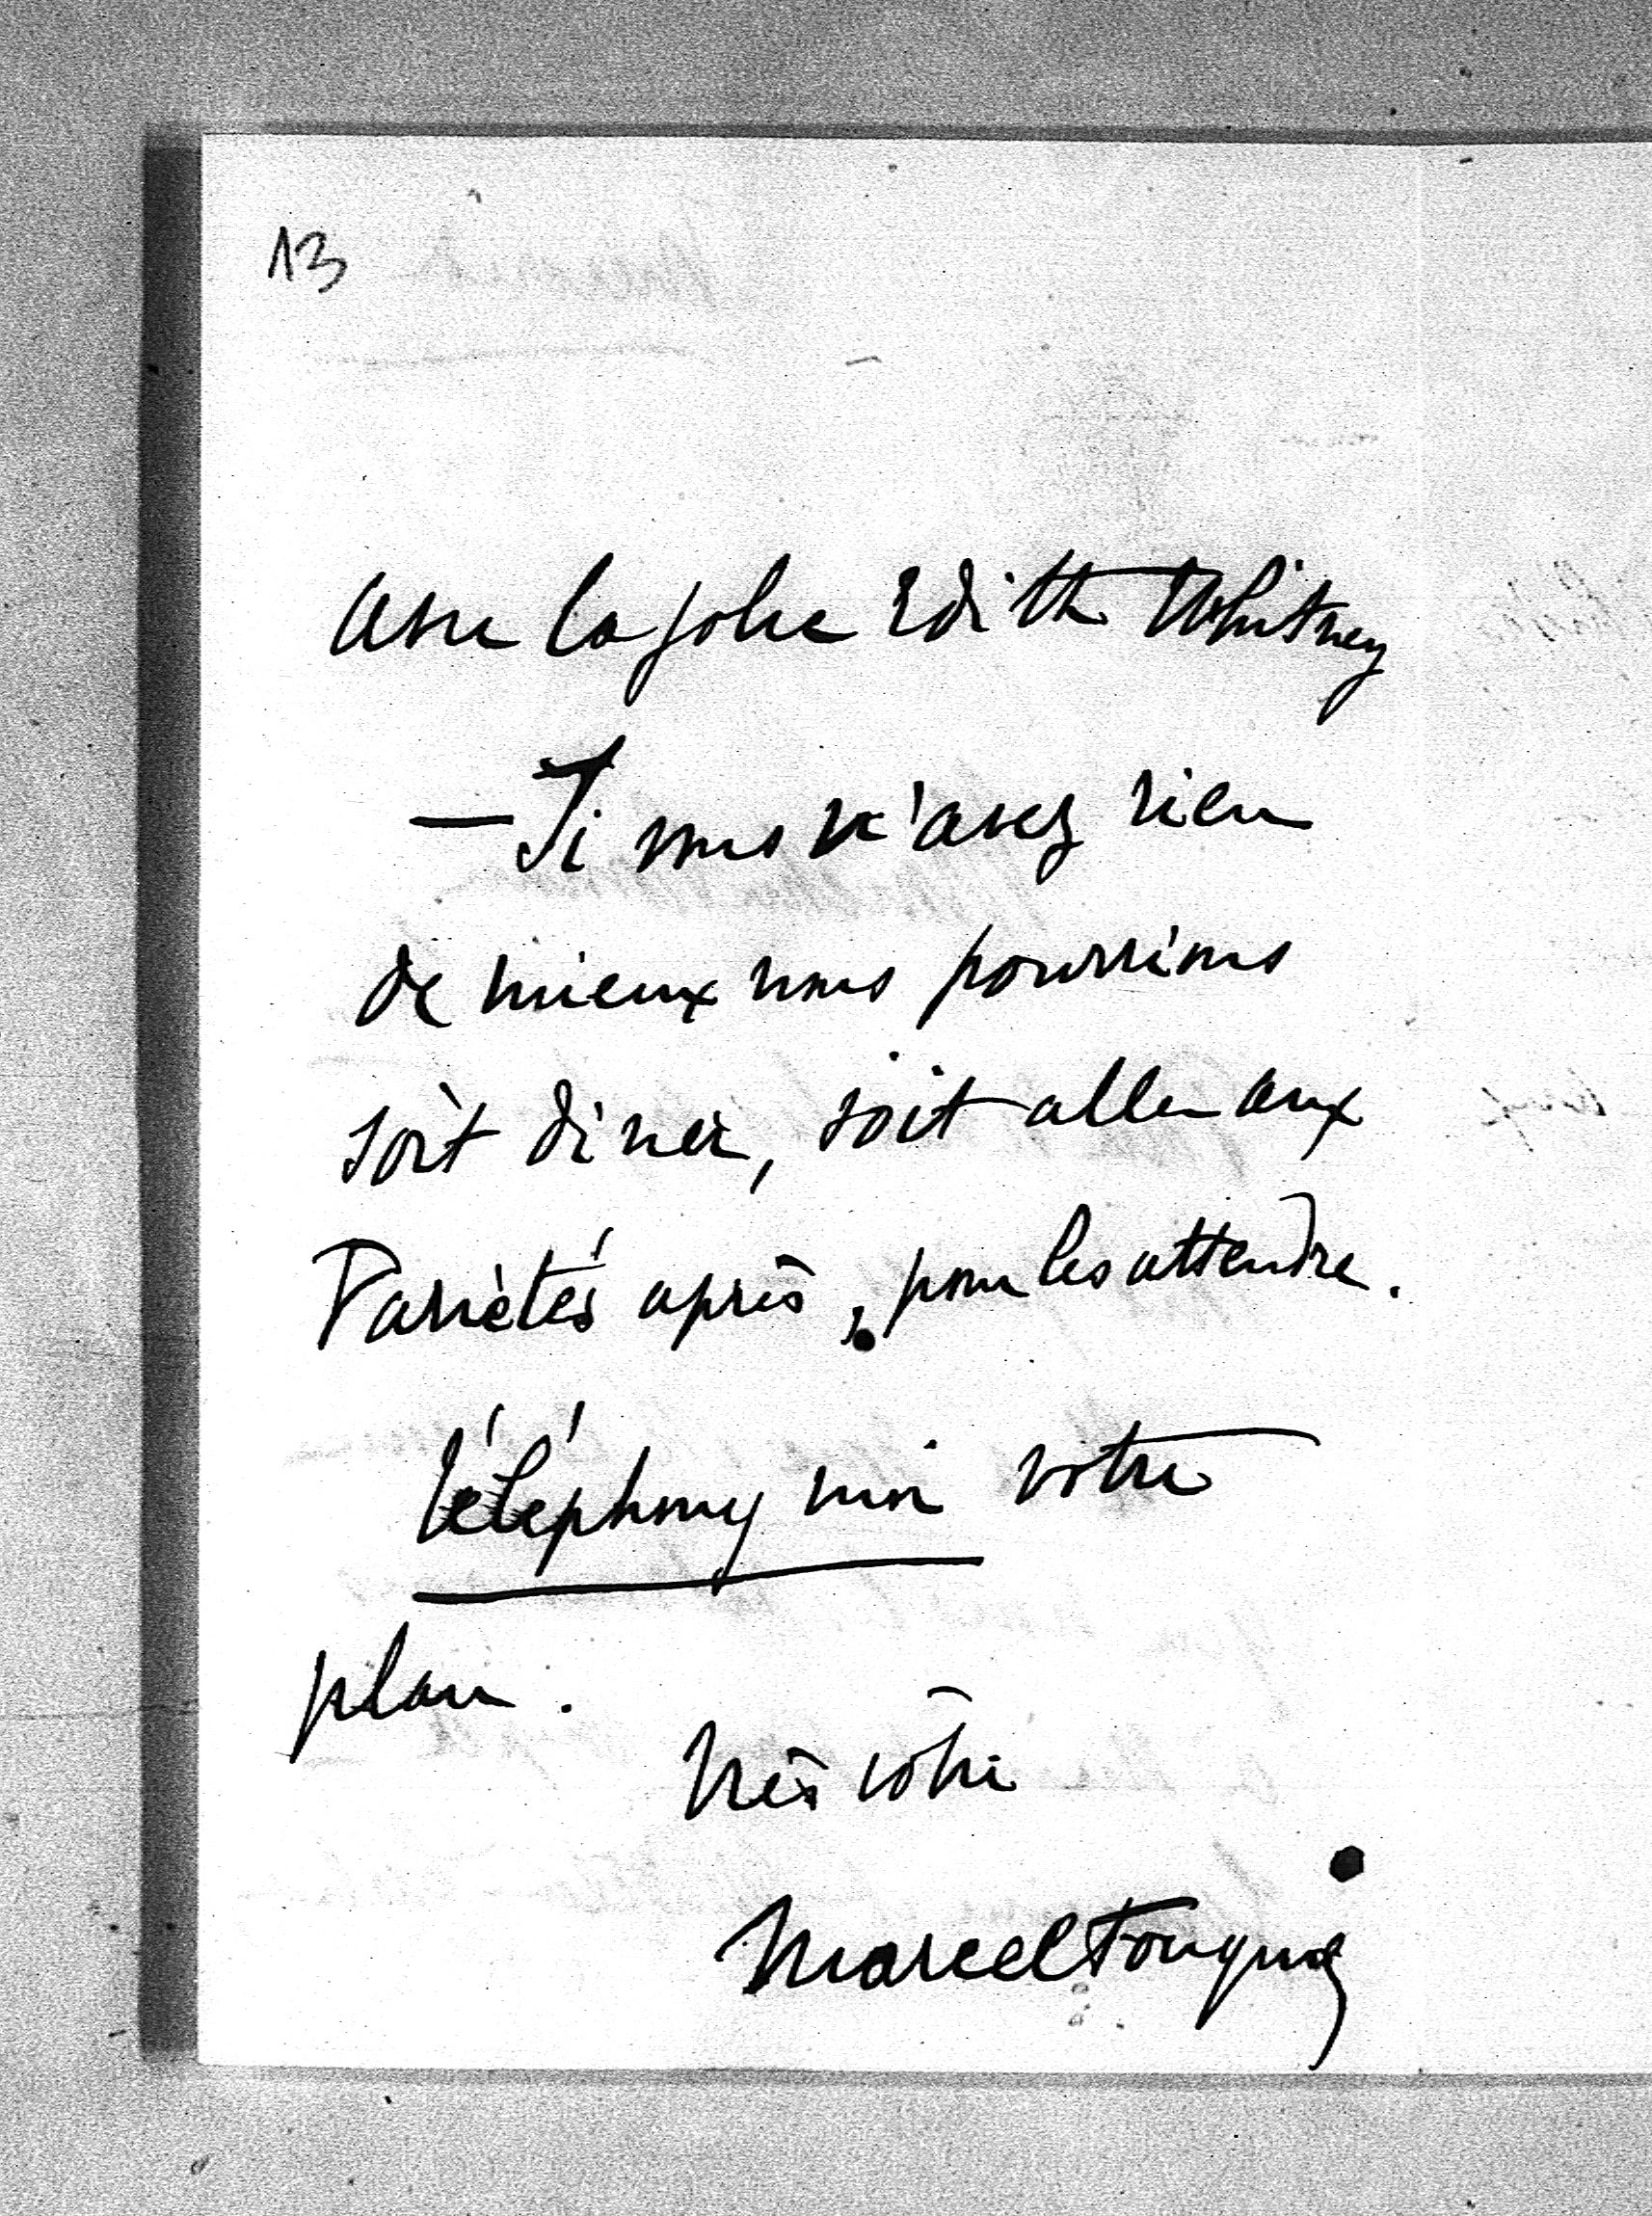 13
avec la jolie Edith Whitney
— Si vous n'avez rien
de mieux nous pourrions
soit diner, soit aller aux
Variétés après, pour les attendre.
téléphonez moi votre
plan.
très vôtre
Marcel Fouquier